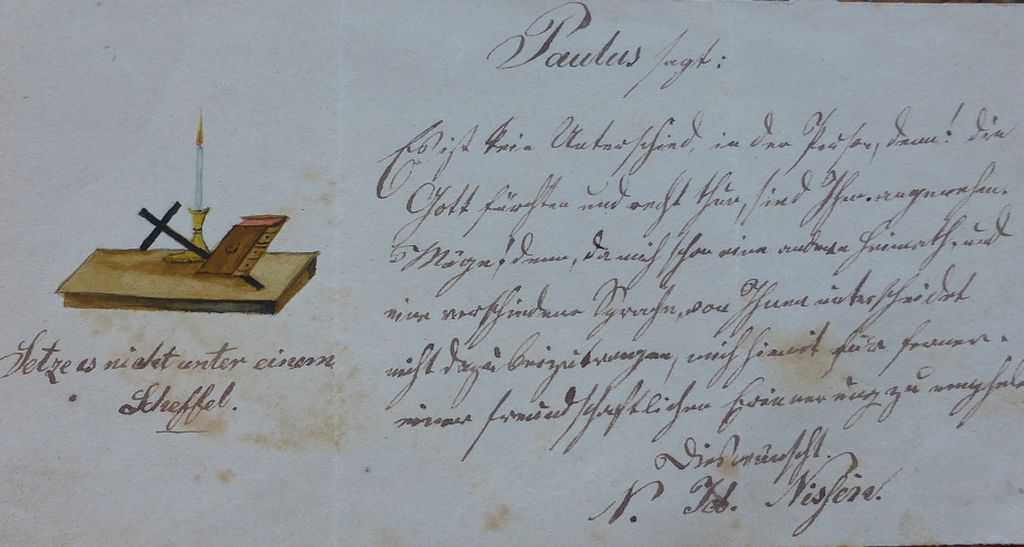 Paulus sagt:
Es ist kein Unterschied, in der Person, denn! die
Gott fürchten und recht thun, sind Ihm angenehm.
Möge denn, da mich schon eine andere Heimath, und
eine verschiedene Sprache, von Ihnen unterscheidet
nicht dazu beizutragen, mich hiemit für ferner
einer freundschaftlichen Erinnerung zu empfehle
Dies wünscht.
N. Nissen.
Setze es nicht unter einem
Scheffel.